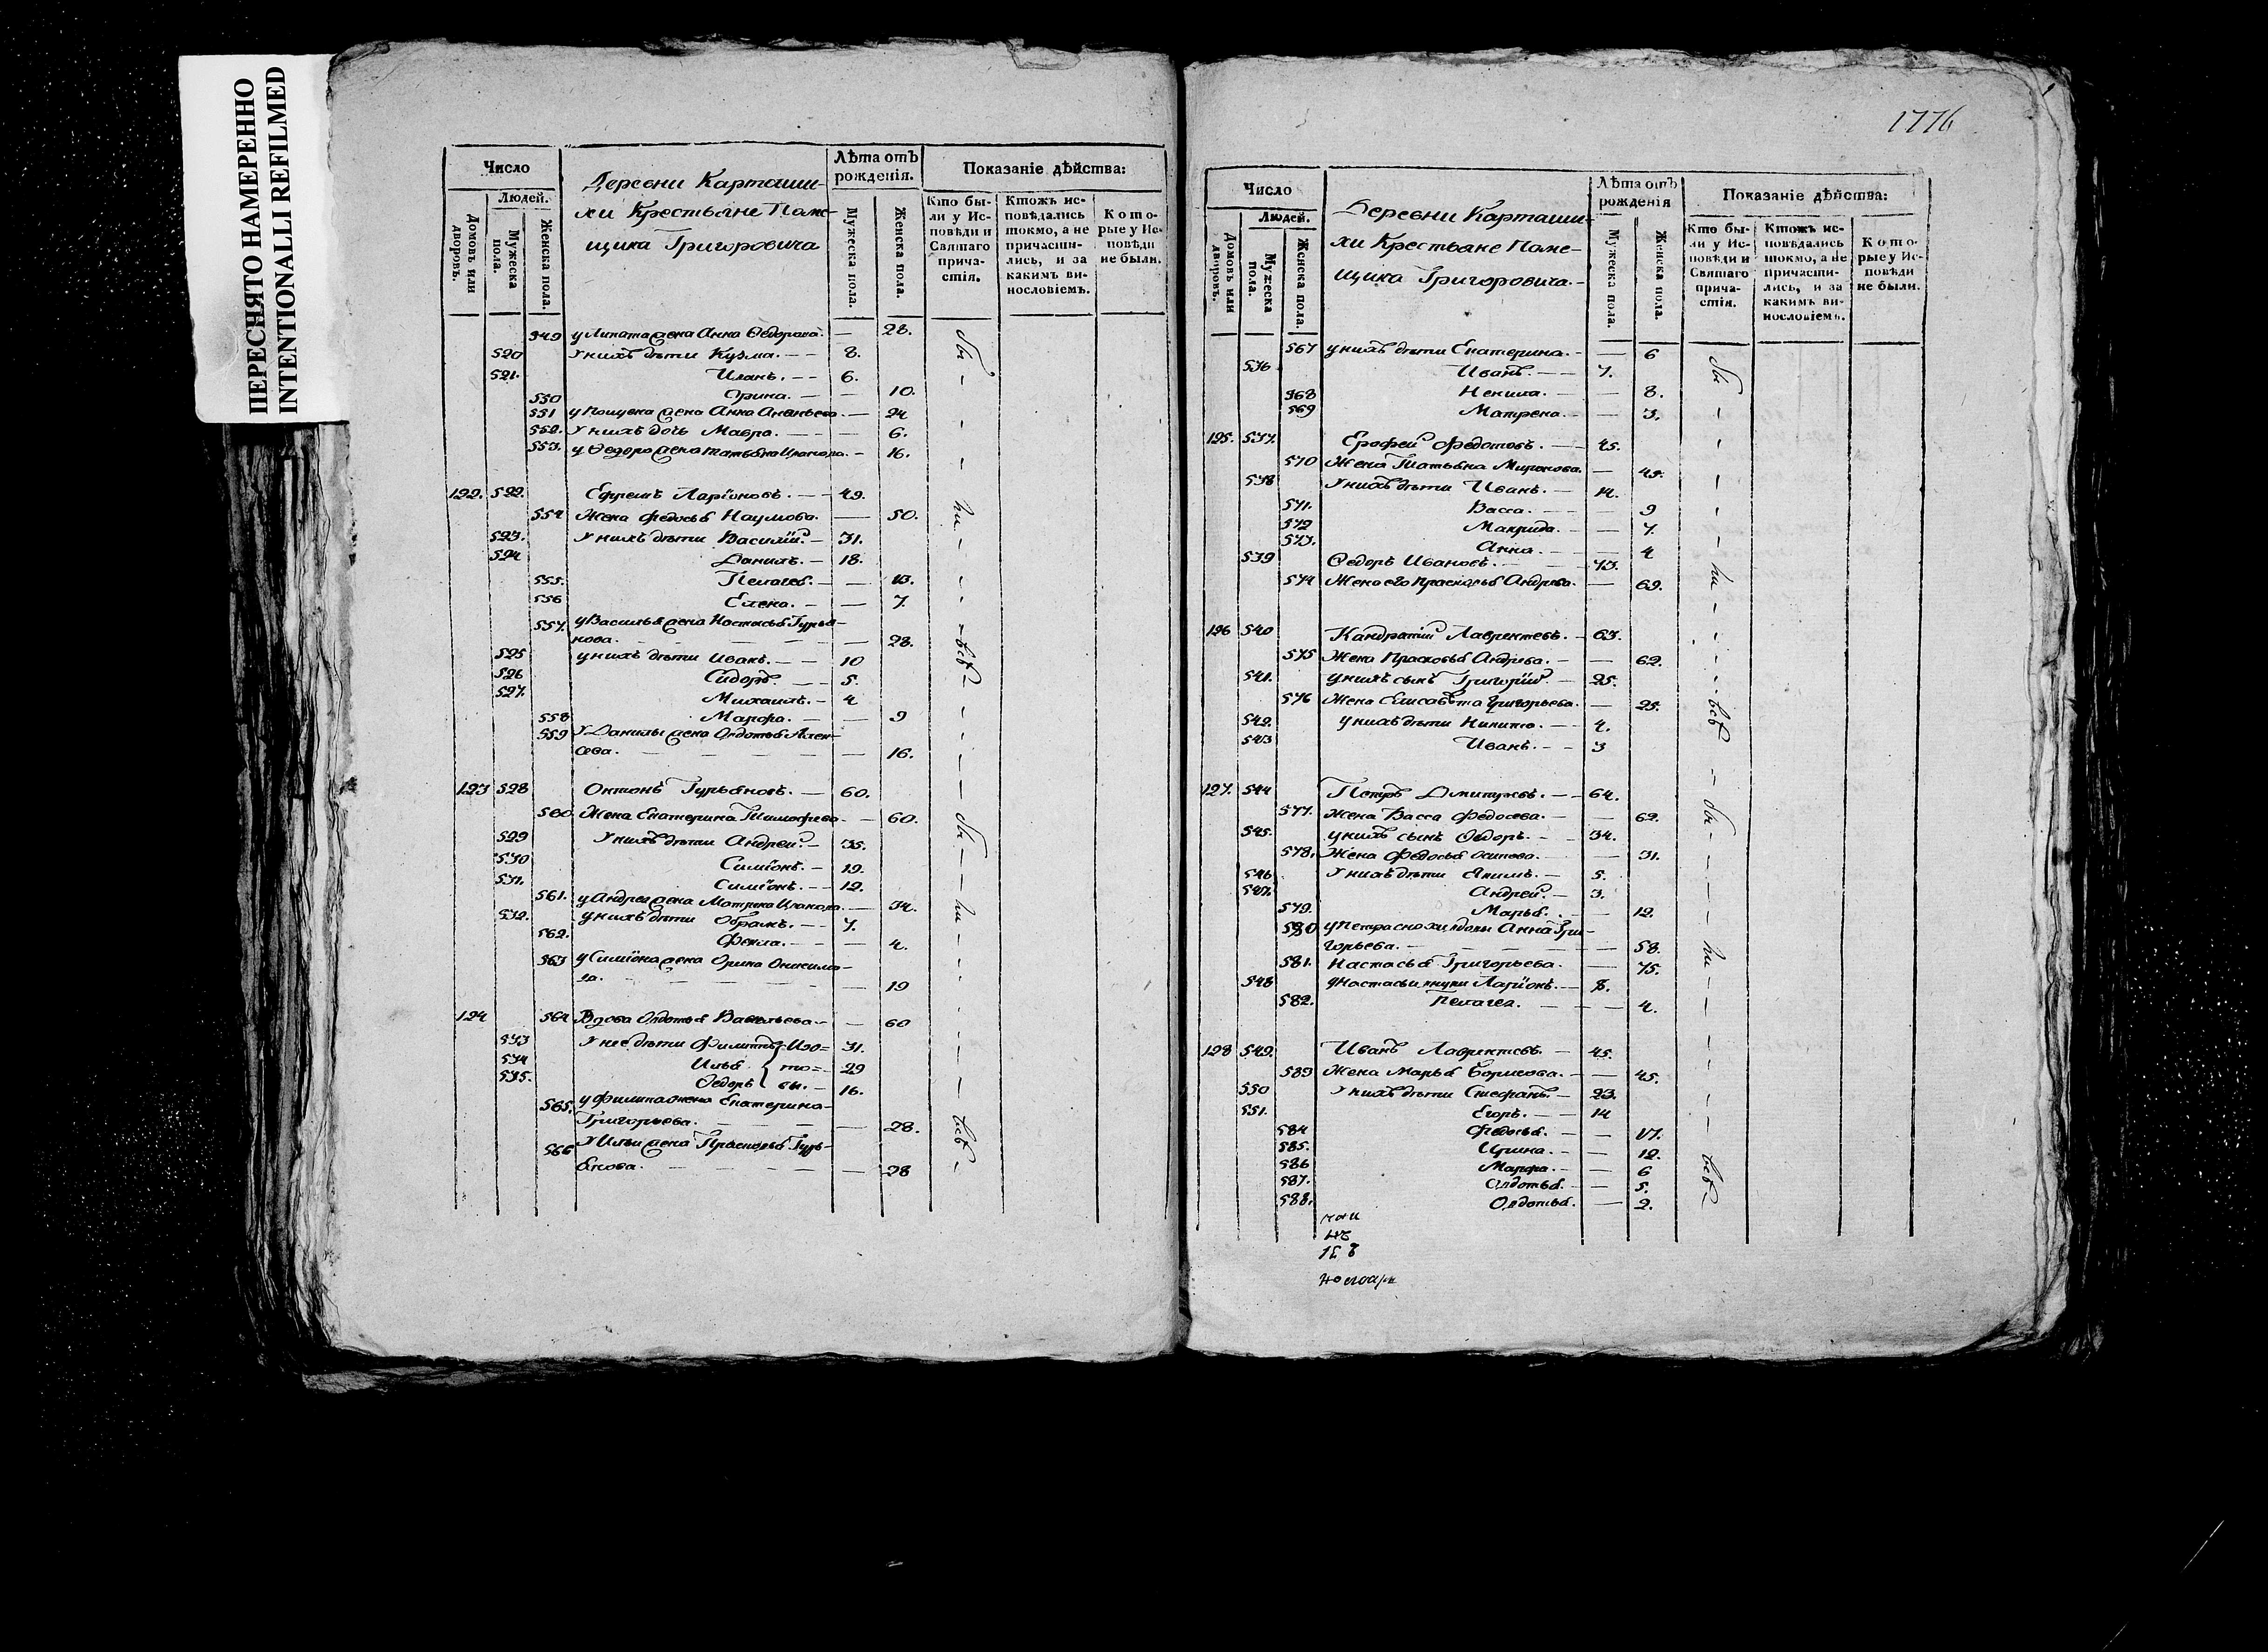 ПЕРЕСНЯТО НАМЕРЕННО
INTENTIONALLI REFILMED
Число
Людей.
Домовъ или дворовъ.
Мужеска пола.
Женска пола.
Деревни Карташи-
хи Крестьяне Поме-
щика Григоровича
Лѣта отъ рожденія.
Мужеска пола.
Женска пола.
Показаніе дѣйства:
Кто бы-
ли у Ис-
повѣди и
Святаго
прича-
стія.
Ктожъ ис-
повѣдались
токмо, а не
причасти-
лись, и за
какимъ ви-
нословіемъ.
Кото-
рые у Ис-
повѣди
не были.
549 у Липата жена Анна Ѳедорова. — 28.
520 У нихъ дѣти Кузма. — 8.
521. 6.
550 Орина. — 10.
551 жена Анна — 24
552. У нихъ дочь Мавра. — 6.
553. у Ѳедора жена Татьяна — 16.
122. 522. Ефремъ Ларіоновъ. — 49.
554 Жена Федосья Наумова. — 50.
523. У нихъ дѣти Василій. — 31.
524 Данилъ. — 18.
555. Пелагея. — 13.
556 Елена. — 7.
557. у Василья жена Настасья Гурья-
нова. — 28.
525 у нихъ дѣти Иванъ. — 10
526 Сидоръ. — 5.
527. Михаилъ. — 4
558 Марфа. — 9
559 У Данилы жена Овдотья Алек-
сева. — 16.
123 528 Онтонъ Гурьяновъ. — 60.
560. Жена Екатерина Тимофеева — 60.
529 У нихъ дѣти Андрей. — 35.
530 Симіонъ. — 19.
531. Симіонъ. — 12.
561. у Андрея жена Матрена — 34.
532. у нихъ дѣти Обрамъ. — 7.
562. Фекла. — 4.
563 у Симіона жена Орина Онисимо-
ва. — 19
124 564 Вдова Овдотья Васильева — 60
533 У нее дѣти Филиппъ Изо= 31.
534 Илья то=. 29
535. Ѳедоръ вы. — 16.
565. у Филипа жена Екатерина
Григорьева. — 28.
566 У Ильи жена Прасковья Гурь-
янова. — 28
бы
ли
всѣ
бы
ли
всѣ
1776
Число
Людей.
Домовъ или дворовъ.
Мужеска пола.
Женска пола.
Деревни Карташи-
хи Крестьяне Поме-
щика Григоровича.
Лѣта отъ рожденія
Мужеска пола.
Женска пола.
Показаніе дѣйства:
Кто бы-
ли у Ис-
повѣди и
Святаго
прича-
стія.
Ктожъ ис-
повѣдались
токмо, а не
причасти-
лись, и за
какимъ ви-
нословіемъ.
Кото-
рые у Ис-
повѣди
не были.
567 у нихъ дѣти Екатерина. — 6
536 Иванъ. — 7.
568 Ненила. — 8.
569 Матрена. — 3.
125. 537. Ерофей Федотовъ. — 45.
570 Жена Татьяна Миронова. — 45.
538 У нихъ дѣти Иванъ. — 14.
571. Васса. — 9
572 Макрида. — 7.
573. Анна. — 4
539 Ѳедоръ Ивановъ. — 73.
574 Жена его Прасковья Андрева. — 69.
126 540 Кандратій Лаврентевъ. — 63.
575 Жена Прасковья Андрева. — 62.
541. у нихъ сынъ Григорій. — 25.
576 Жена Елисавѣта Григорьева. — 25.
542. у нихъ дѣти Никита. — 4.
543 Иванъ. — 3
127. 544 Петръ Дмитревъ. — 64.
577. Жена Васса Федосева. — 62.
545. у нихъ сынъ Ѳедоръ. — 34.
578. Жена Федосья Осипова. — 31.
546 У нихъ дѣти Якимъ. — 5.
547. Андрей. — 3.
579. Марья. — 12.
580 у Петра снохи вдовы Анна Гри-
горьева. — 58.
581. Настасья Григорьева. — 75.
548 у Настасьи внуки Ларіонъ. — 8.
582. Пелагея. — 4.
128 549. Иванъ Лаврентевъ. — 45.
583 Жена Марья Борисова. — 45.
550 У нихъ дѣти Стефанъ. — 23.
551. Егоръ. — 14
584 Федосья. — 17.
585. Ирина. — 12.
586 Марфа. — 6
587. Овдотья. — 5.
588. Овдотья. — 2.
бы
ли
всѣ
бы
ли
всѣ